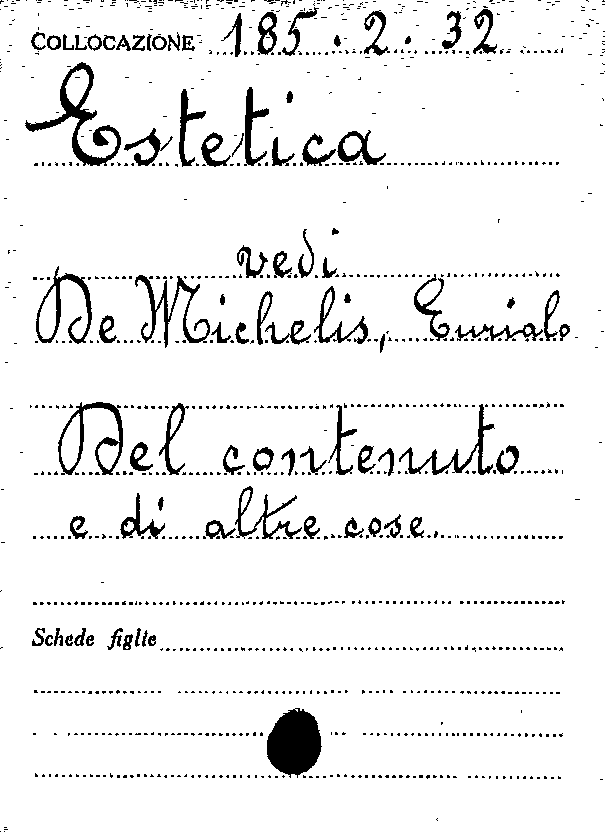 COLLOCAZIONE 185.2.32
Estetica
vedi
De Michelis, Eurialo
Del contenuto
e di altre cose.
Schede figlie